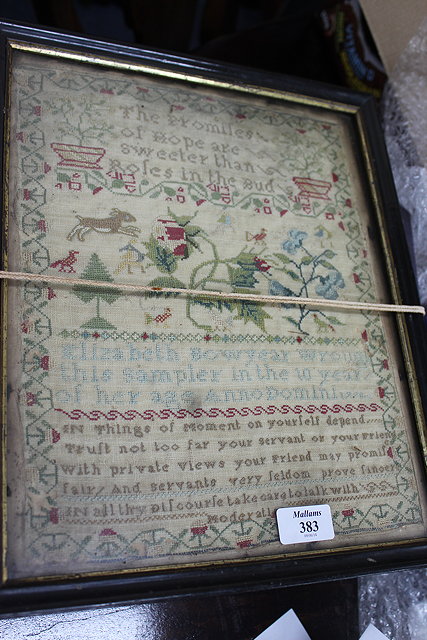 The Promises
of Hope are
sweeter than
Roses in the Bud
Elizabeth Bowyear Wroug
this sampler in the 11 year
of her age Anno Domini
IN Things of Moment on yourself depend
Trust not too far your servant or your Frien
with private Views your Friend may promis
fairy And servants very seldom prove sincer
IN all thy Discourse take care to talk with
Moderati
Mallams
383